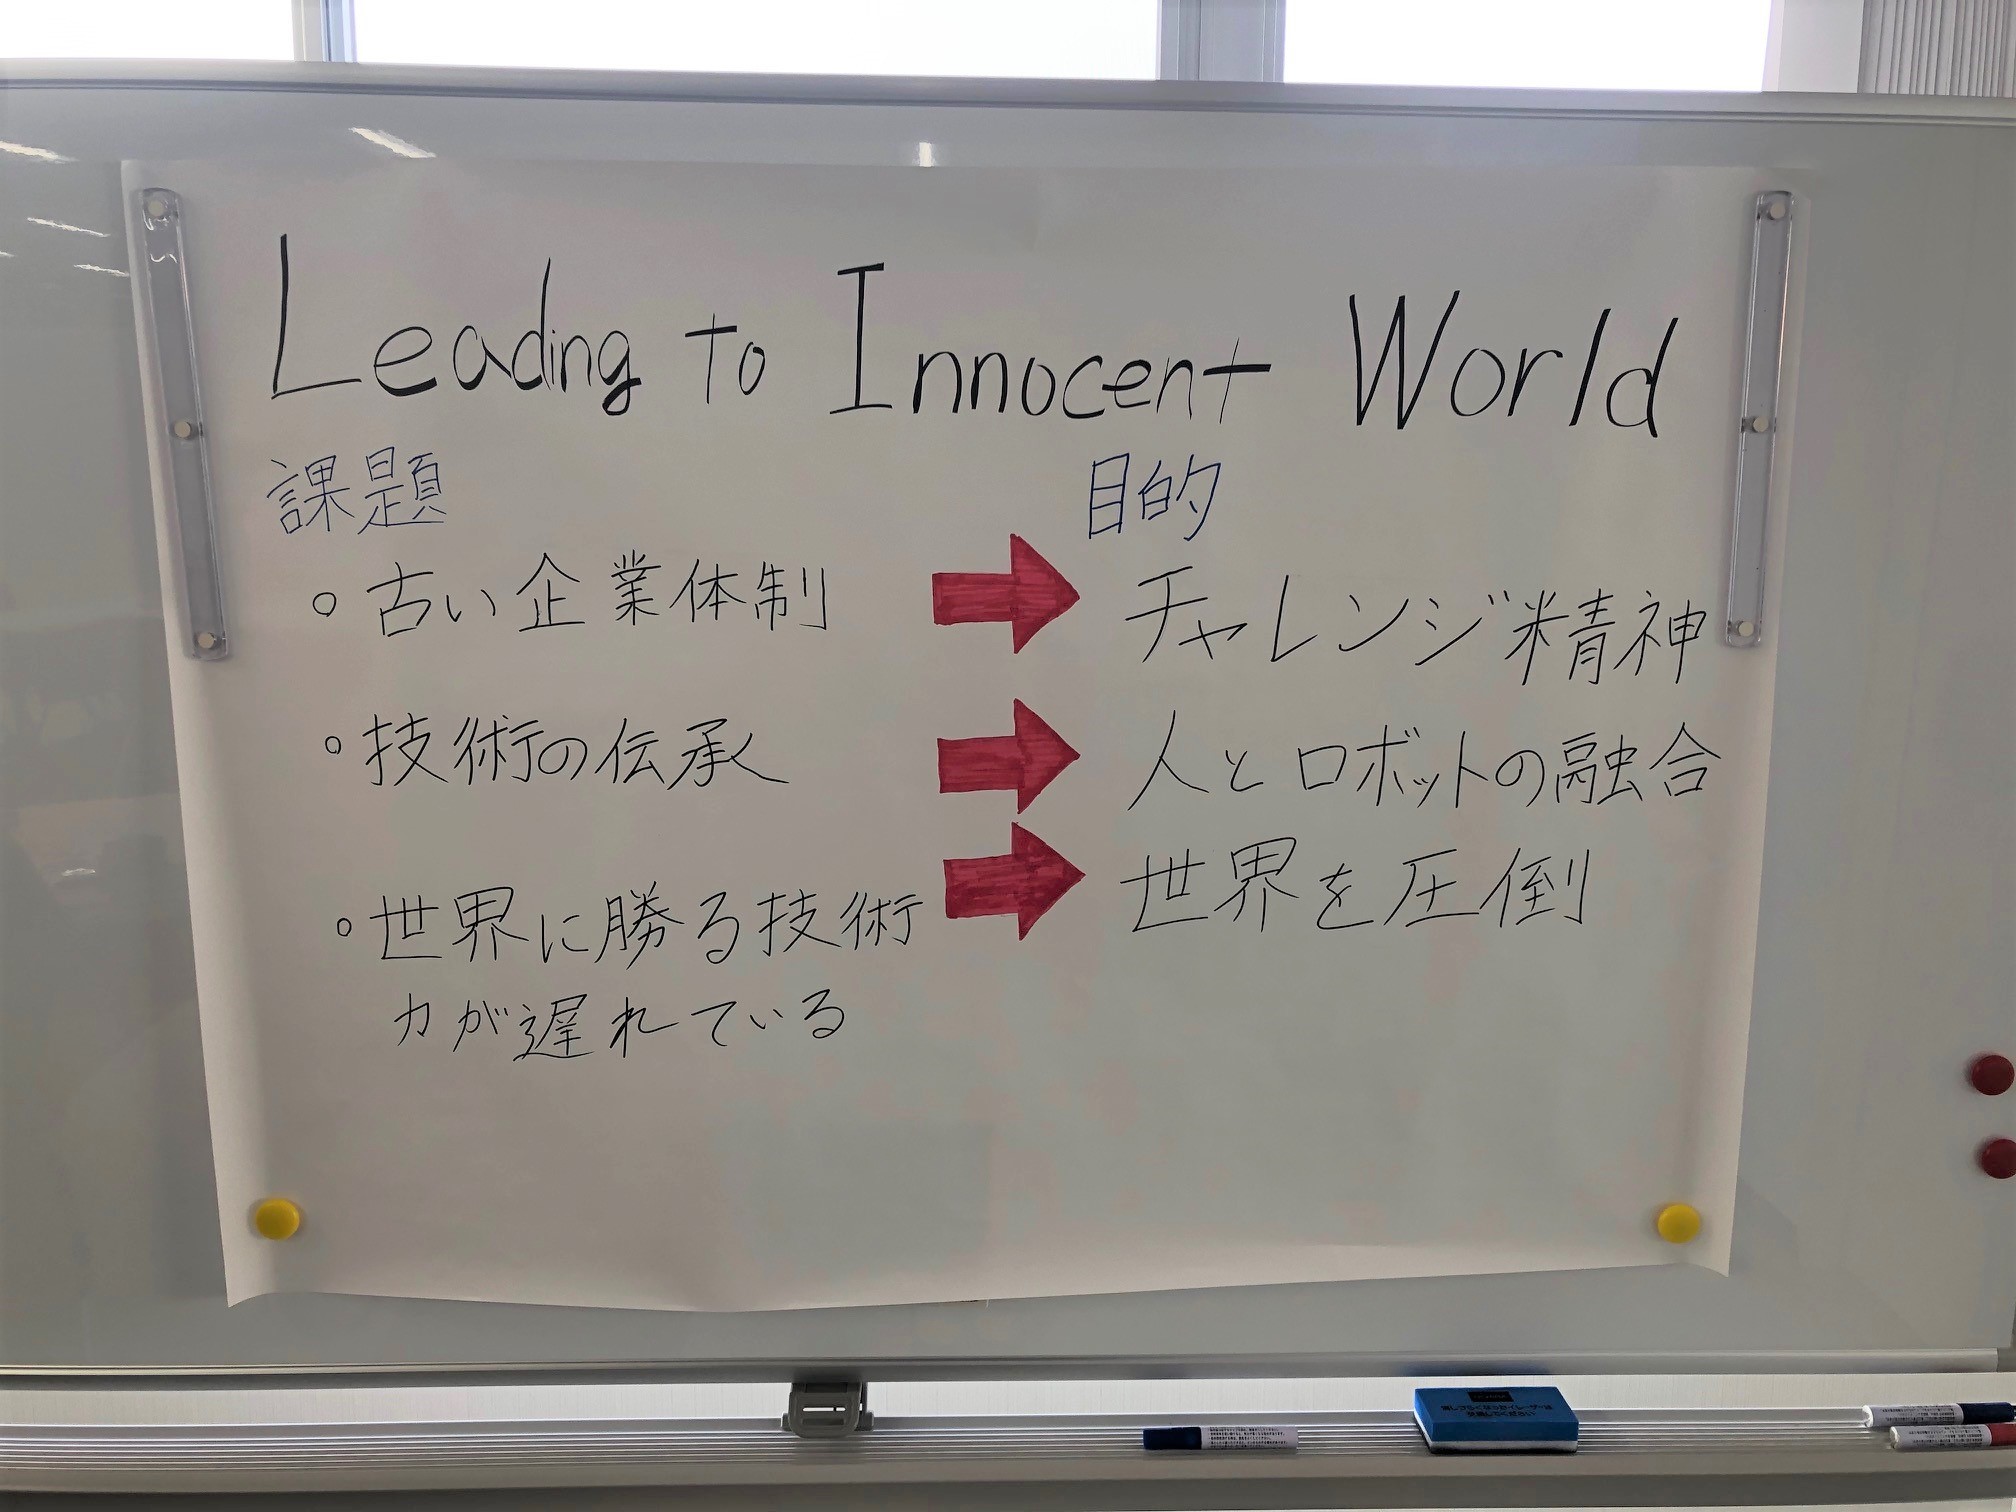 Leading to Innocent World
課題
目的
。古い企業体制
チャレンジ精神
。技術の伝承
人とロボットの融合
。世界に勝る技術
力が遅れている
世界を圧倒